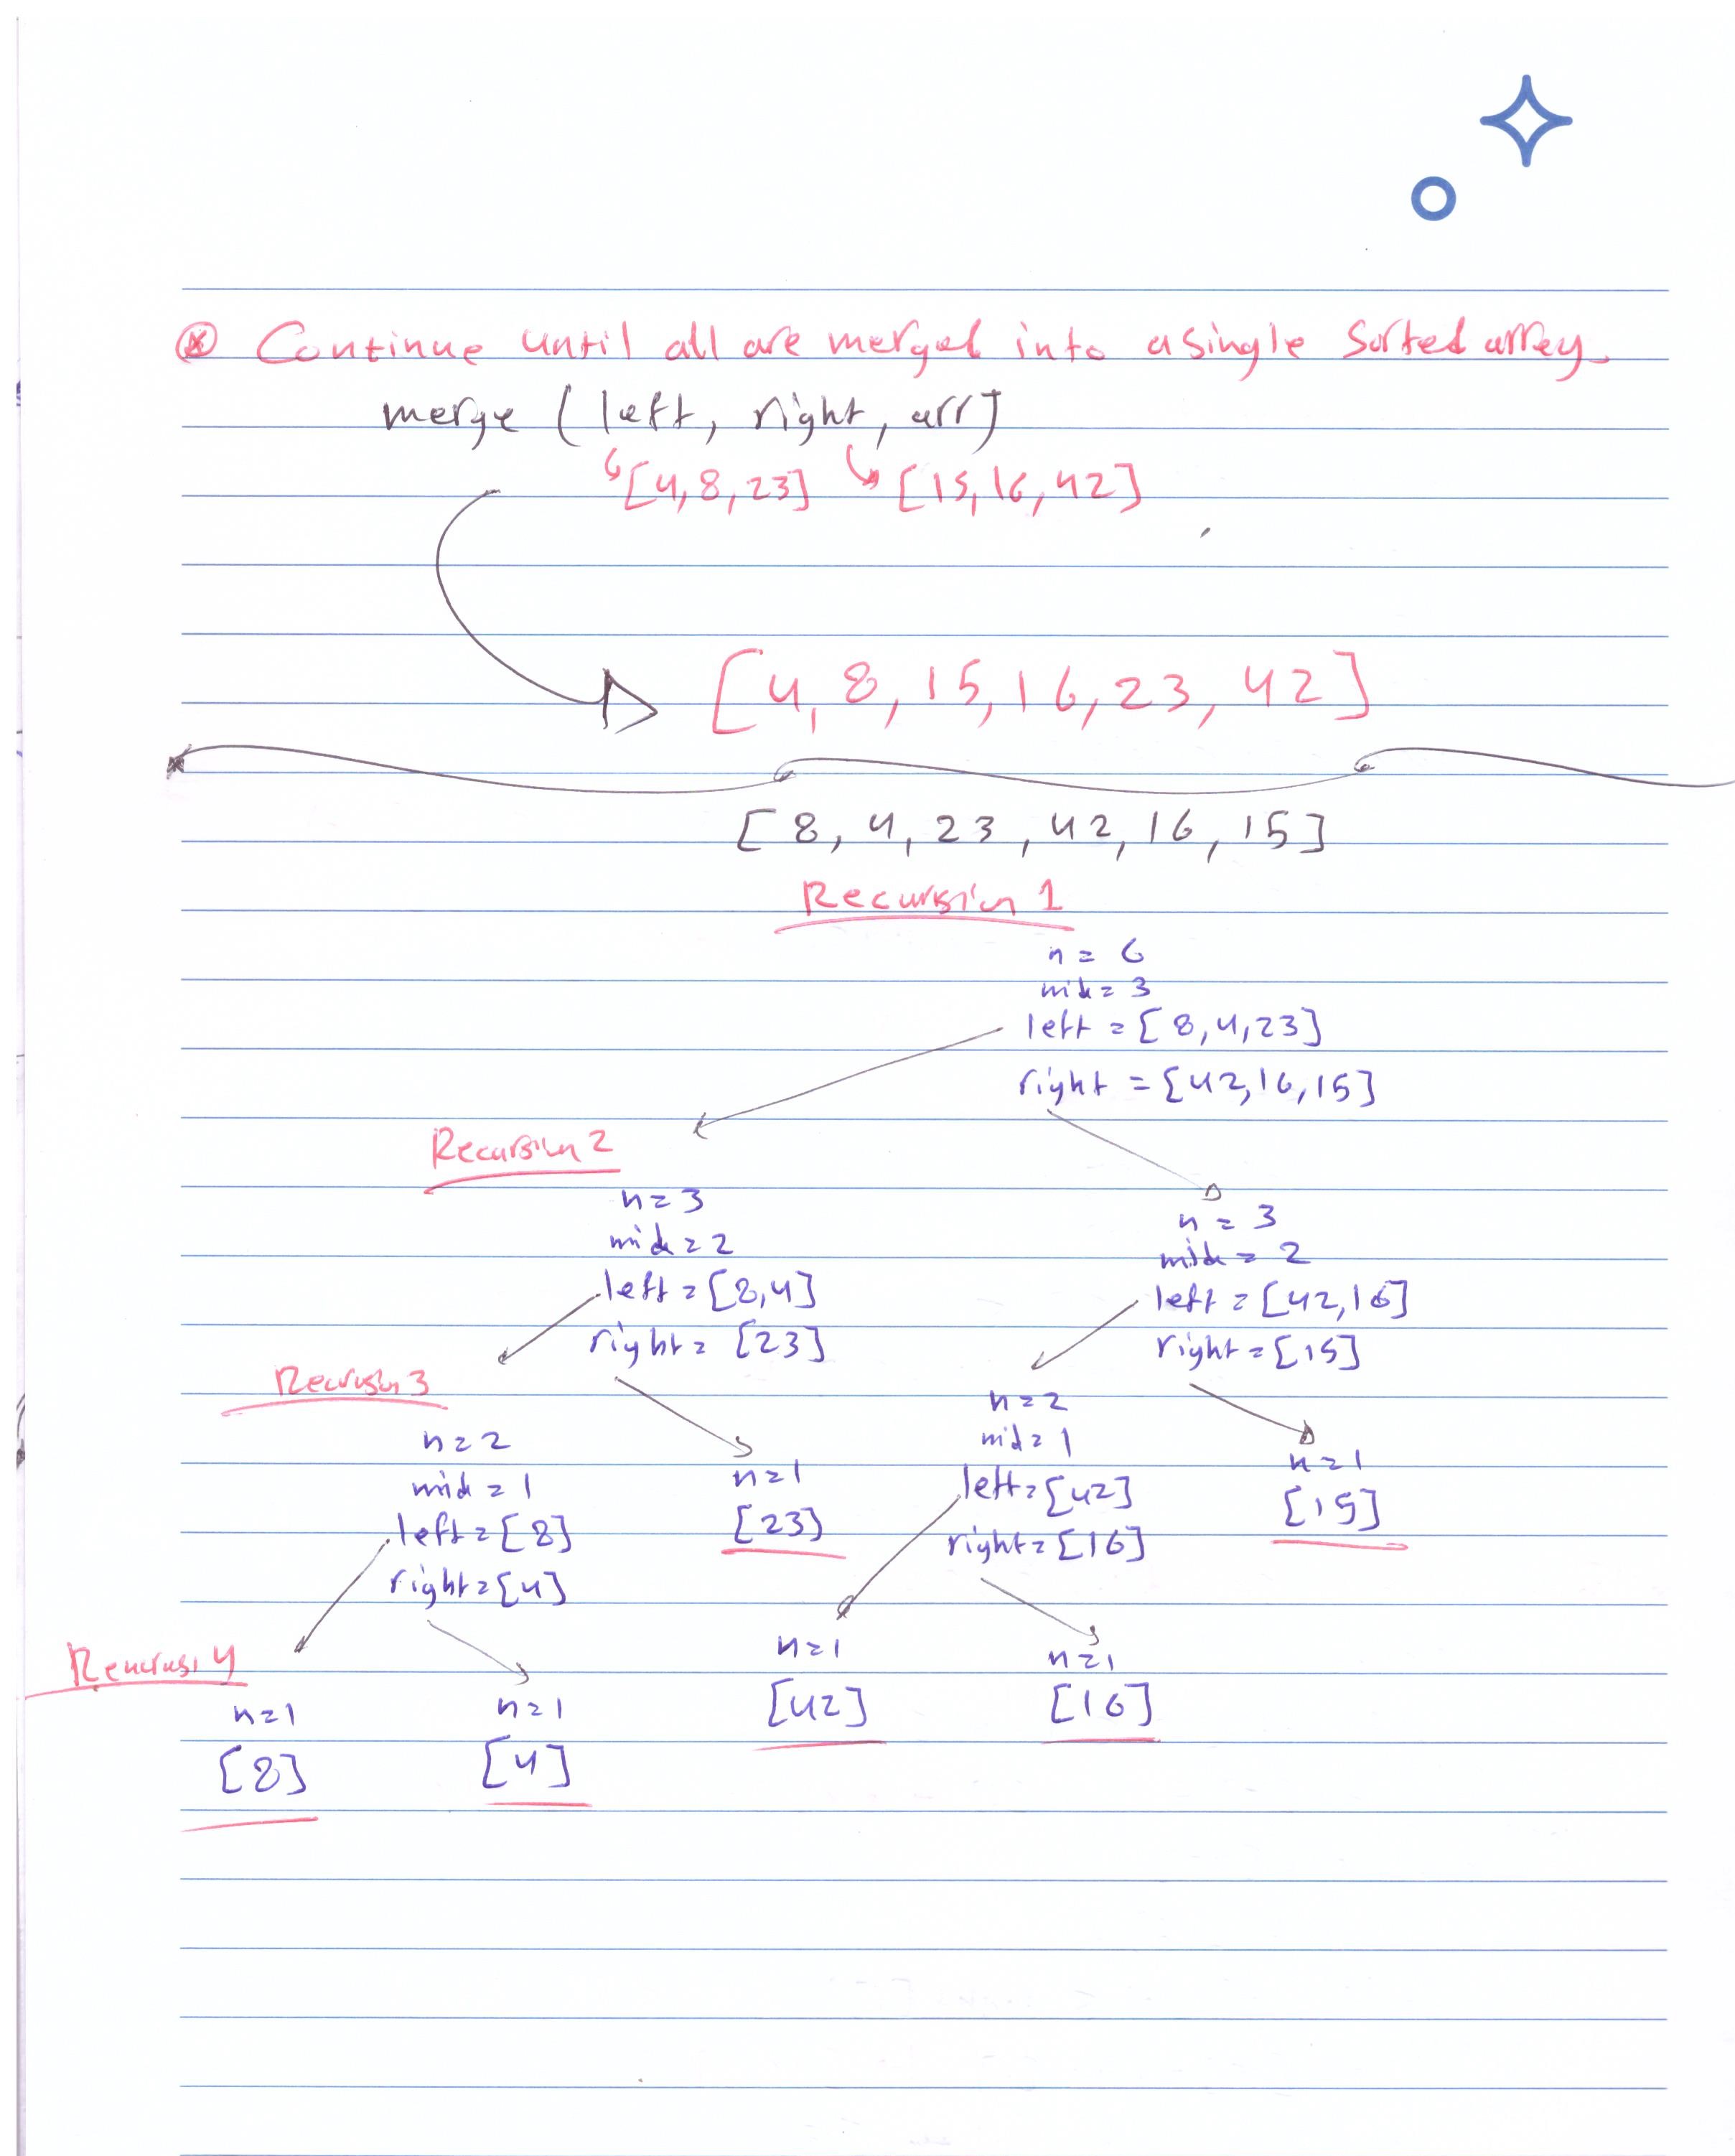 ⊛ Continue until all are merged into a single sorted array.
merge (left, right, arr)
[4,8,23] [15,16,42]
[4,8,15,16,23,42]
[8,4,23,42,16,15]
Recursion 1
n = 6
mid = 3
left = [8,4,23]
right = [42,16,15]
Recursion 2
n=3
mid=2
left=[8,4]
right=[23]
n = 3
mid = 2
left=[42,16]
right=[15]
Recursion 3
n=2
mid=1
left=[8]
right=[4]
n=1
[23]
n=2
mid=1
left=[42]
right=[16]
n=1
[15]
n=1
[8]
n=1
[4]
n=1
[42]
n=1
[16]